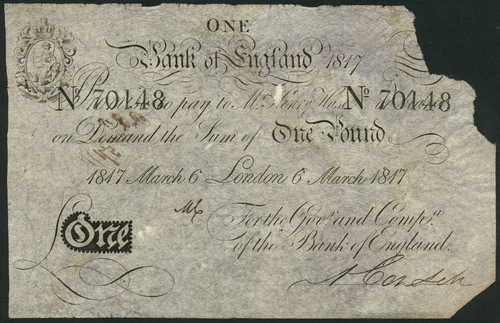 ONE
Bank of England 1817
Nº 70148 to pay to Mr. Henry Nº 70148
on Demand the Sum of One Pound
1817 March 6 London 6 March 1817
For the Govr. and Compa.
One
of the Bank of England.